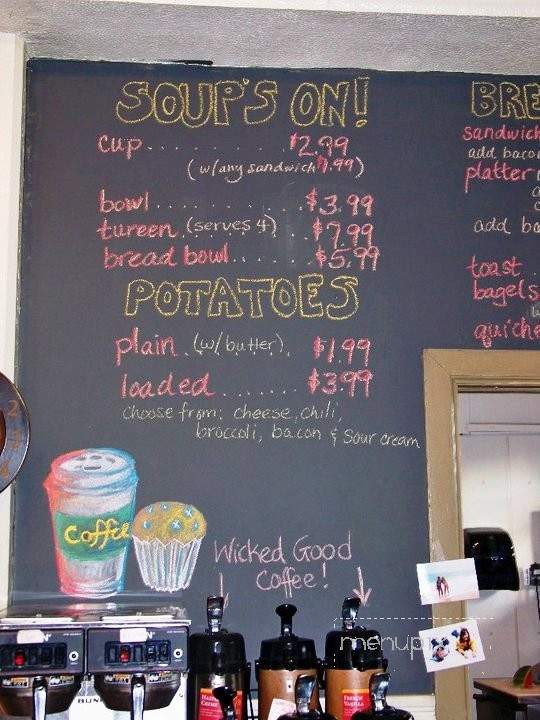 SOUP'S ON!
cup . . . . . . . . . . $2.99
(w/any sandwich 1.99)
bowl . . . . . . . . . . $3.99
tureen . (serves 4) . . $7.99
bread bowl . . . . . . $5.99
POTATOES
plain . (w/butter) . $1.99
loaded . . . . . . . $3.99
choose from: cheese, chili,
broccoli, bacon & sour cream
BRE
sandwich
add bacon
platter
add ba
toast
bagels
quiche
Coffee
Wicked Good
Coffee!
BUNN
FRENCH
VANILLA
menup